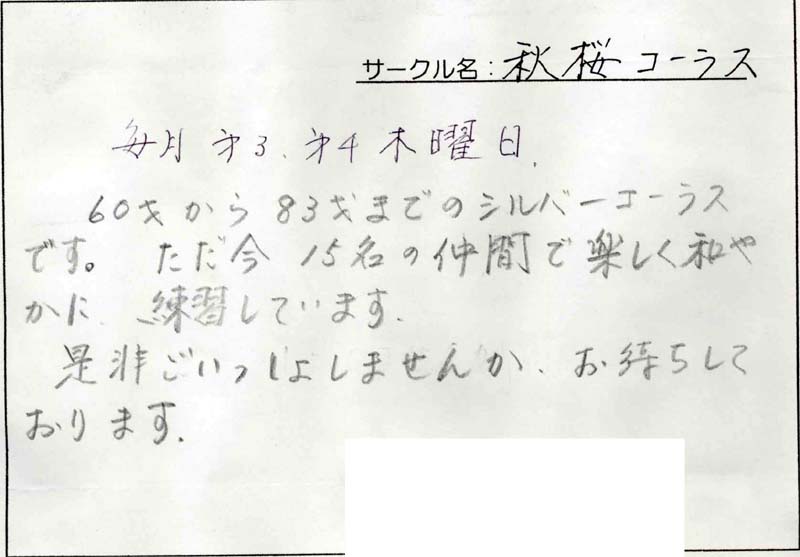 サークル名：秋桜コーラス
毎月才3、才4木曜日.
60才から83才までのシルバーコーラス
です。ただ今15名の仲間で楽しく和や
かに、練習しています.
是非ごいっしょしませんか、お待ちして
おります.